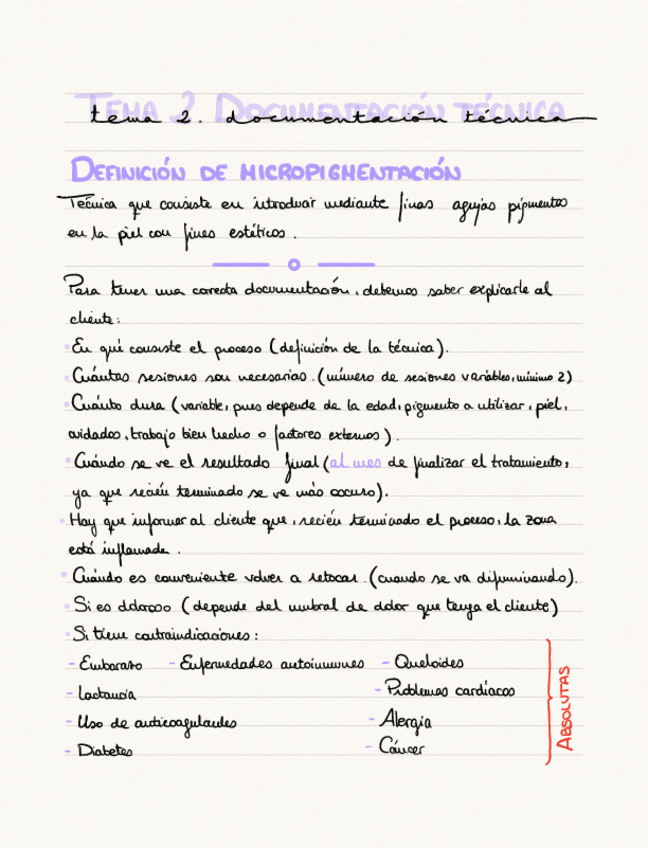 TEMA 2. DOCUMENTACIÓN TÉCNICA
tema 2. documentación técnica
DEFINICIÓN DE MICROPIGMENTACIÓN
Técnica que consiste en introducir mediante finas agujas pigmentos
en la piel con fines estéticos.
Para tener una correcta documentación, debemos saber explicarle al
cliente:
• En qué consiste el proceso (definición de la técnica).
• Cuántas sesiones son necesarias. (número de sesiones variables, mínimo 2)
• Cuánto dura (variable, pues depende de la edad, pigmento a utilizar, piel,
cuidados, trabajo bien hecho o factores externos).
• Cuándo se ve el resultado final (al mes de finalizar el tratamiento,
ya que recién terminado se ve más oscuro).
• Hay que informar al cliente que, recién terminado el proceso, la zona
está inflamada.
• Cuándo es conveniente volver a retocar. (cuando se va difuminando).
• Si es doloroso (depende del umbral de dolor que tenga el cliente)
• Si tiene contraindicaciones:
- Embarazo - Enfermedades autoinmunes - Queloides
- Lactancia - Problemas cardíacos
- Uso de anticoagulantes - Alergia
- Diabetes - Cáncer
ABSOLUTAS